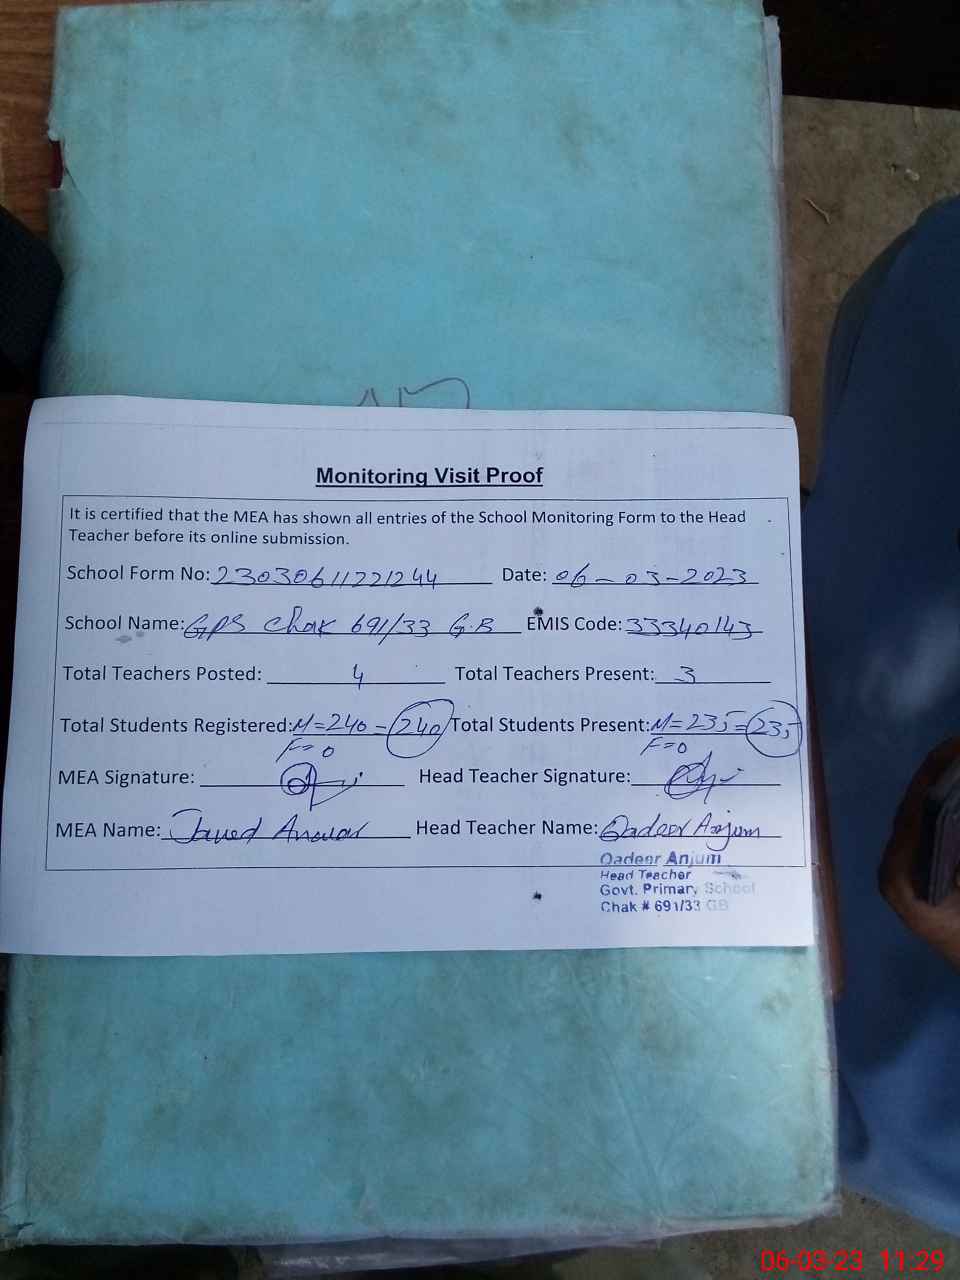 Monitoring Visit Proof
It is certified that the MEA has shown all entries of the School Monitoring Form to the Head
Teacher before its online submission.
School Form No: 23030611221244 Date: 06-03-2023
School Name: GPS Chak 691/33 G.B EMIS Code: 33340143
Total Teachers Posted: 4 Total Teachers Present: 3
Total Students Registered: M=240 = 240 Total Students Present: M=235 = 235
F=0 F=0
MEA Signature: Head Teacher Signature:
MEA Name: Javed Anwar Head Teacher Name: Qadeer Anjum
Qadeer Anjum
Head Teacher
Govt. Primary School
Chak # 691/33 GB
06-03-23 11:29